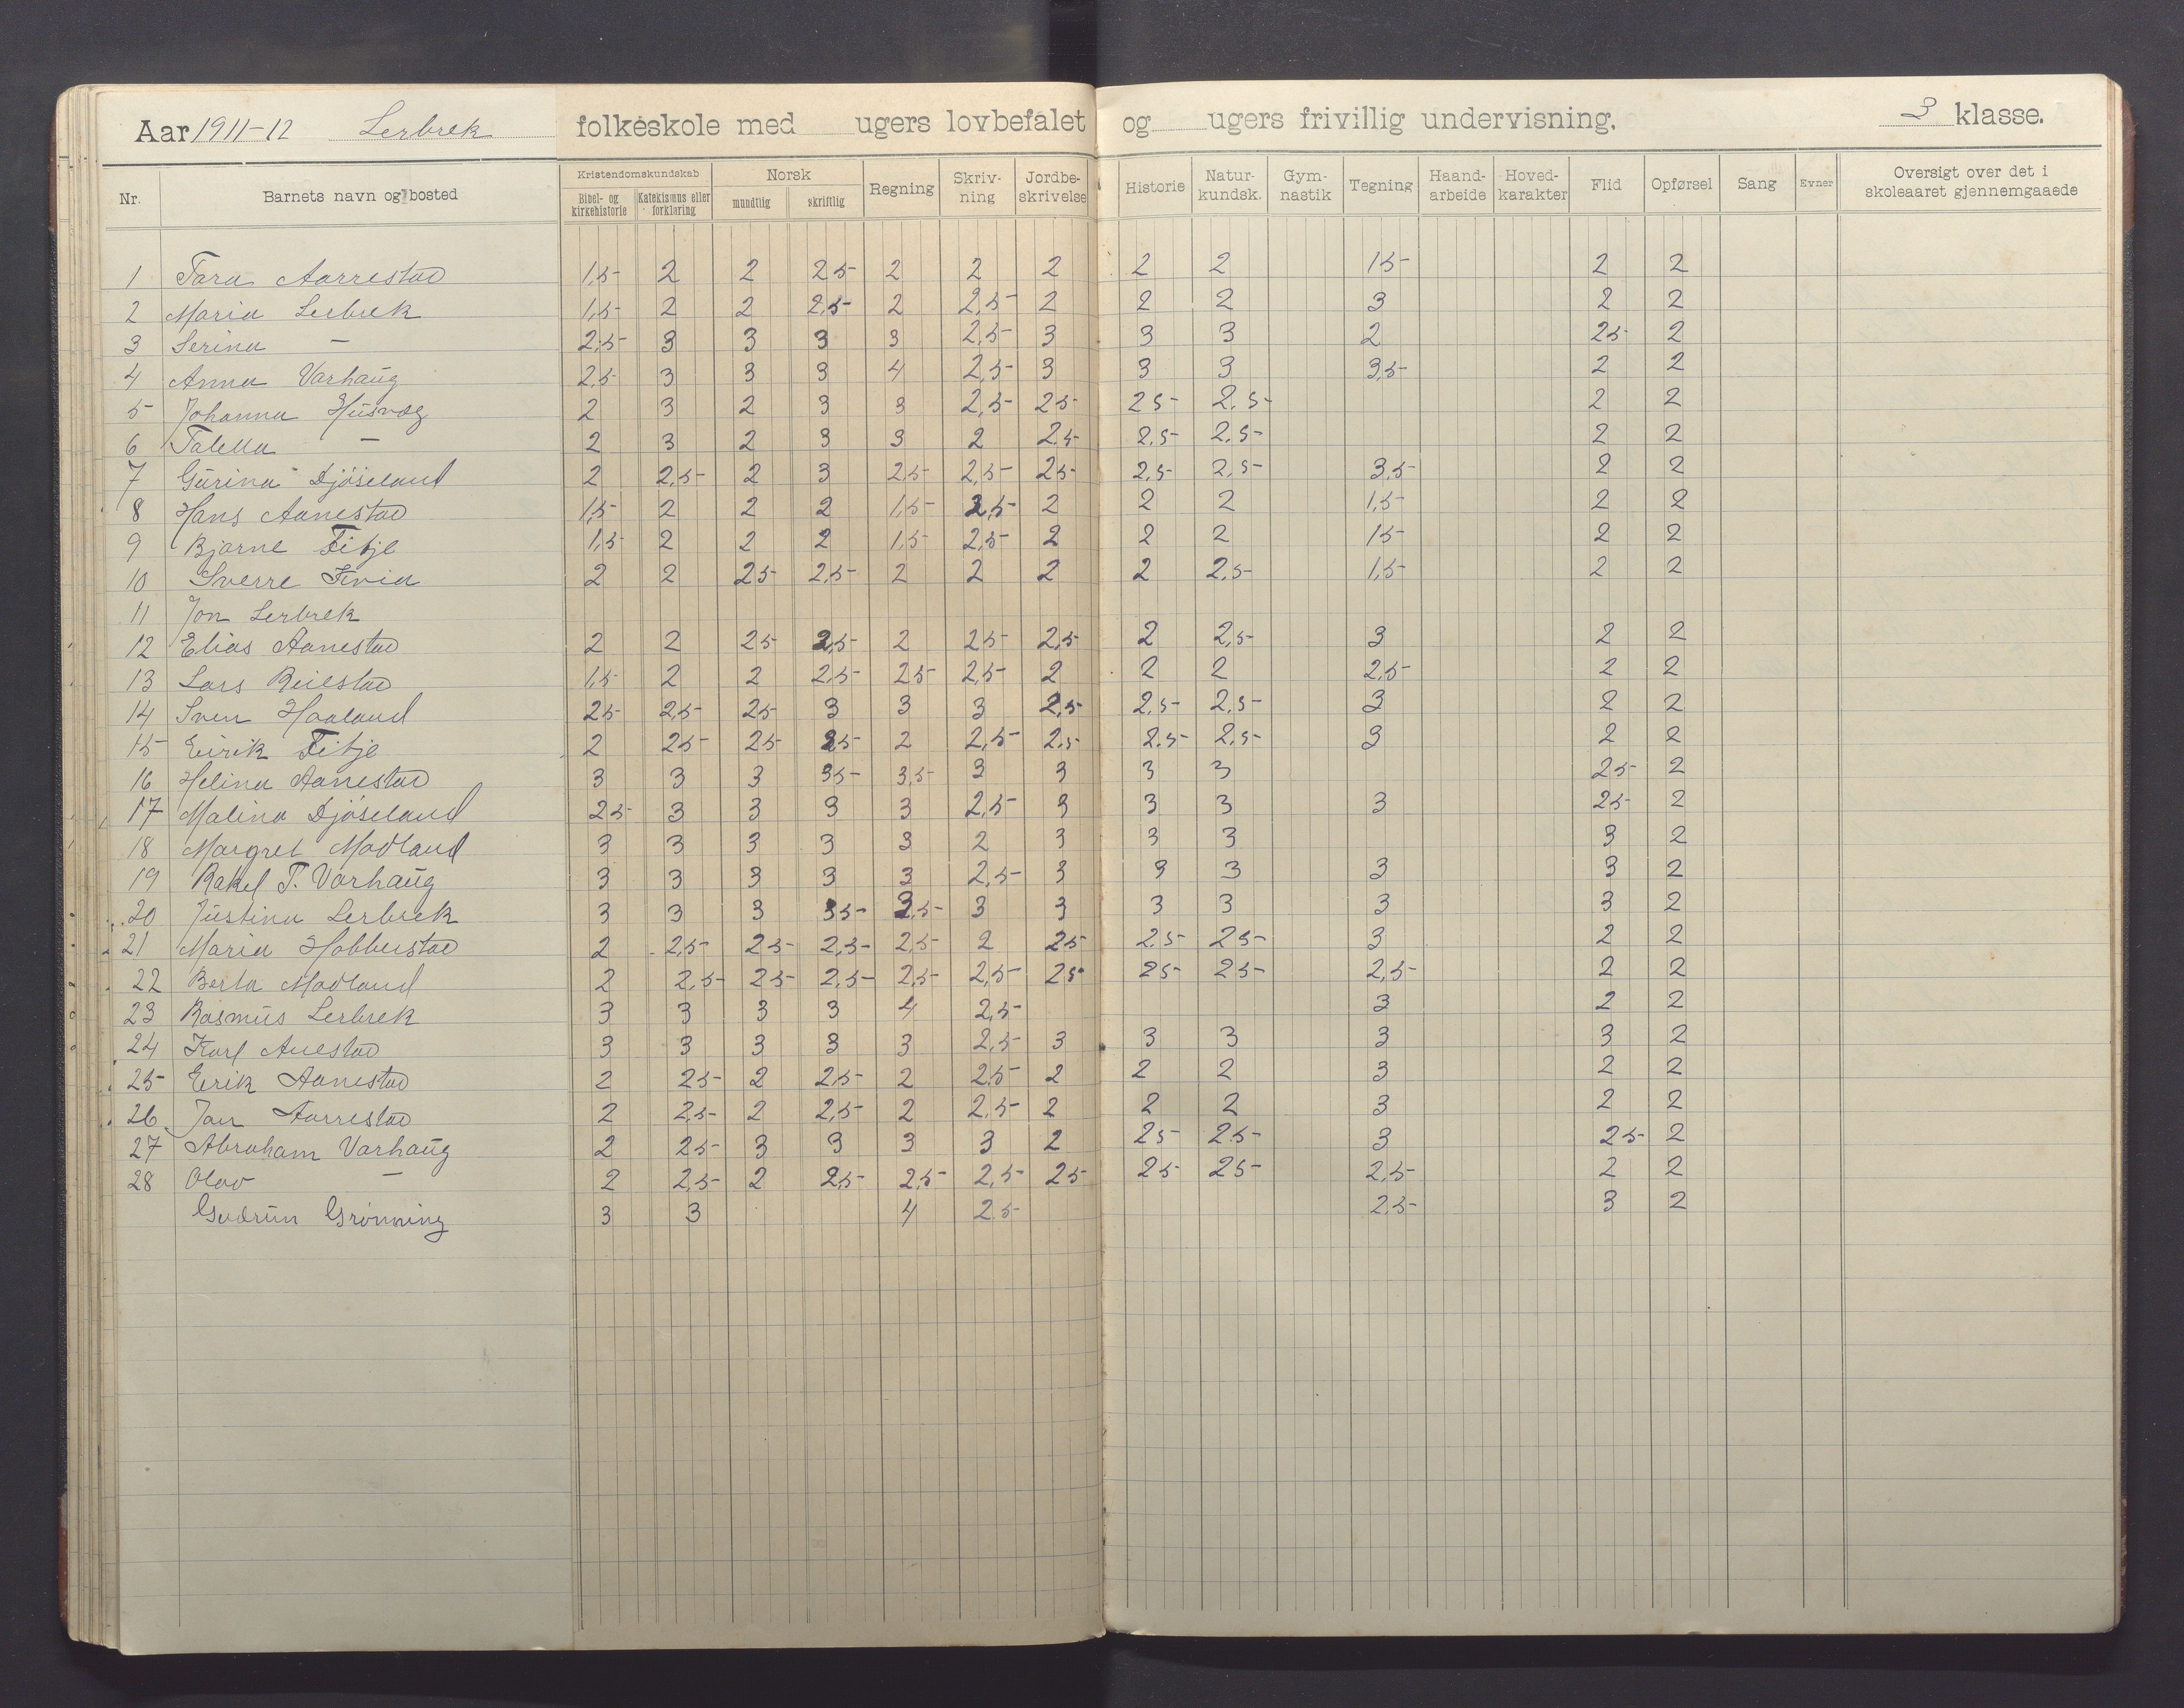 Aar 1911-12 Lerbrek folkeskole med ugers lovbefalet og ugers frivillig undervisning. 3 klasse.
Nr. Barnets navn og bosted Kristendomskundskab Bibel- og kirkehistorie Katekismus eller forklaring Norsk mundtlig skriftlig Regning Skriv-ning Jordbe-skrivelse Historie Natur-kundsk. Gym-nastik Tegning Haand-arbeide Hoved-karakter Flid Opførsel Sang Evner Oversigt over det i skoleaaret gjennemgaaede
1 Tora Aarrestad 1,5 2 2 2 5 2 2 2 2 2 1 5 2 2
2 Maria Lerbrek 1,5 2 2 2,5 2 2,5 2 2 2 3 2 2
3 Serina — 2,5 3 3 3 3 2,5 3 3 3 2 2 5 2
4 Anna Varhaug 2,5 3 3 3 4 2,5 3 3 3 3,5 2 2
5 Johanna Husvæg 2 3 2 3 3 2,5 2 5 2 5 2,5 2 2
6 Talella — 2 3 2 3 3 2 2,5 2,5 2,5 2 2
7 Gurina Djøseland 2 2,5 2 3 2,5 2,5 2 5 2,5 2,5 3,5 2 2
8 Hans Aanestad 1,5 2 2 2 1,5 2,5 2 2 2 1,5 2 2
9 Bjarne Fitje 1,5 2 2 2 1,5 2,5 2 2 2 1 5 2 2
10 Sverre Hvia 2 2 2 5 2,5 2 2 2 2 2,5 1,5 2 2
11 Jon Lerbrek
12 Elias Aanestad 2 2 2 5 2,5 2 2 5 2,5 2 2,5 3 2 2
13 Lars Reiestad 1,5 2 2 2,5 2 5 2,5 2 2 2 2,5 2 2
14 Sven Haaland 2 5 2,5 2 5 3 3 3 2,5 2,5 2,5 3 2 2
15 Eirik Fitje 2 2 5 2 5 2 5 2 2,5 2,5 2,5 2,5 3 2 2
16 Helina Aanestad 3 3 3 3 5 3,5 3 3 3 3 2 5 2
17 Malina Djøseland 2 5 3 3 3 3 2,5 3 3 3 3 2 5 2
18 Margret Madland 3 3 3 3 3 2 3 3 3 3 2
19 Rakel T. Varhaug 3 3 3 3 3 2,5 3 3 3 3 3 2
20 Justina Lerbrek 3 3 3 3 5 3,5 3 3 3 3 3 3 2
21 Maria Hobberstad 2 2,5 2 5 2,5 2,5 2 2 5 2,5 2 5 3 2 2
22 Berta Madland 2 2,5 2 5 2,5 2,5 2,5 2 5 2 5 2 5 2,5 2 2
23 Rasmus Lerbrek 3 3 3 3 4 2,5 3 2 2
24 Karl Auestad 3 3 3 3 3 2,5 3 3 3 3 3 2
25 Eirik Aanestad 2 2 5 2 2,5 2 2,5 2 2 2 3 2 2
26 Jan Aarrestad 2 2,5 2 2,5 2 2,5 2 2 2 3 2 2
27 Abraham Varhaug 2 2 5 3 3 3 3 2 2 5 2,5 3 2 5 2
28 Olav — 2 2,5 2 2,5 2,5 2,5 2 5 2 5 2 5 2,5 2 2
Gudrun Grønning 3 3 4 2 5 2,5 3 2